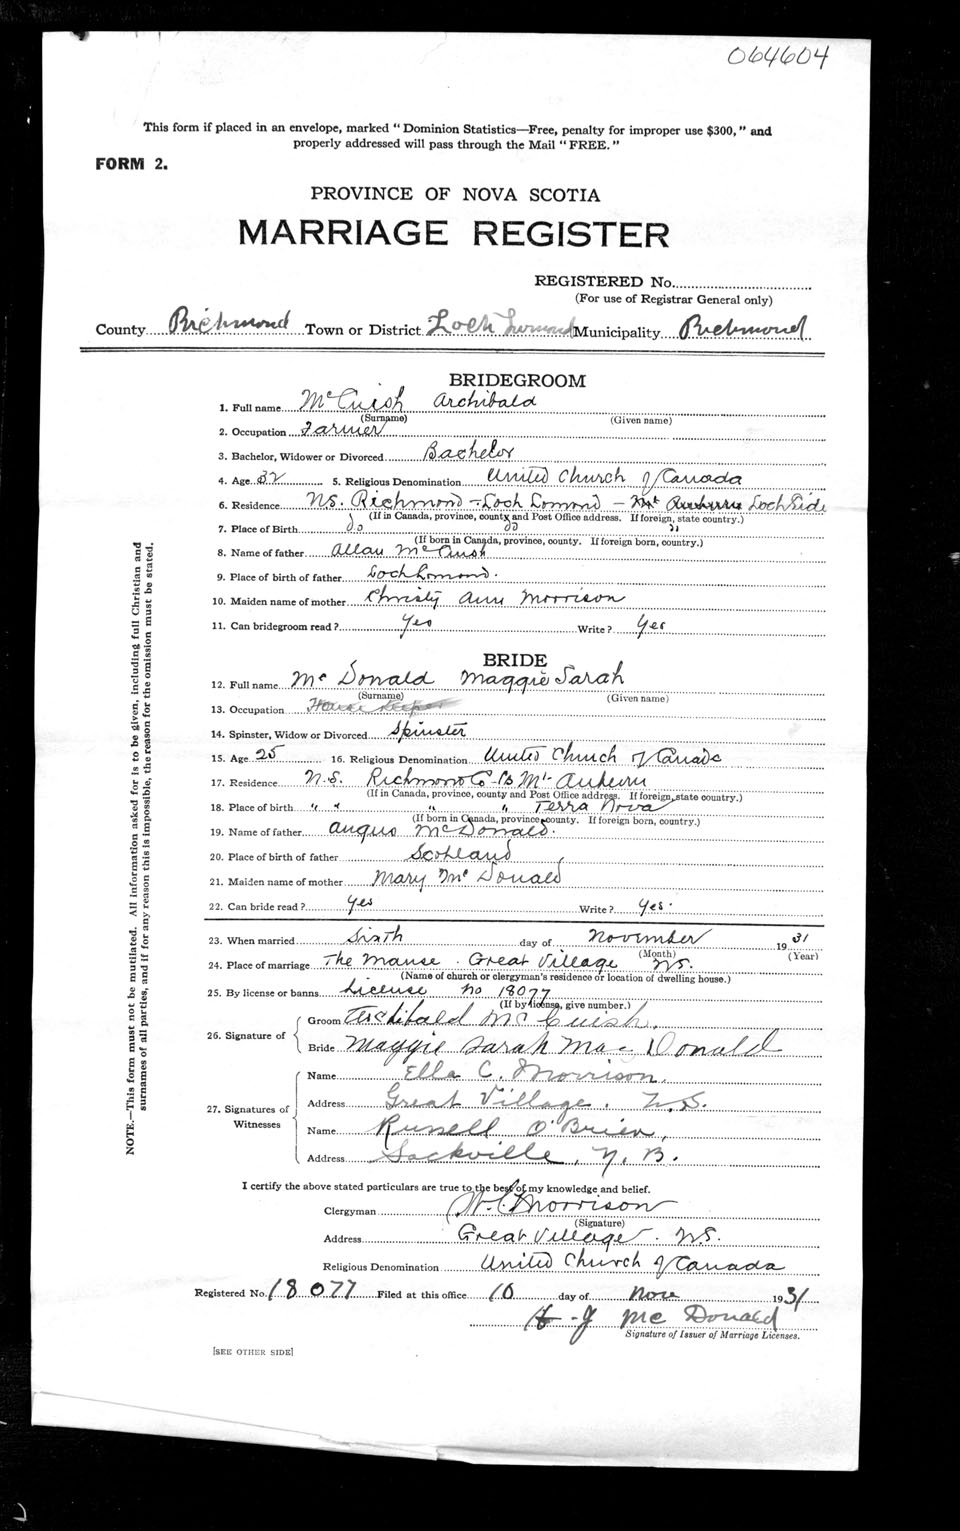 064604
This form if placed in an envelope, marked " Dominion Statistics—Free, penalty for improper use $300, " and
properly addressed will pass through the Mail " FREE. "
FORM 2.
PROVINCE OF NOVA SCOTIA
MARRIAGE REGISTER
REGISTERED No.
(For use of Registrar General only)
County Richmond Town or District Loch Lomond Municipality Richmond
BRIDEGROOM
1. Full name McCuish Archibald
(Surname) (Given name)
2. Occupation Farmer
3. Bachelor, Widower or Divorced Bachelor
4. Age 32 5. Religious Denomination United Church of Canada
6. Residence NS. Richmond - Loch Lomond - Loch Side
(If in Canada, province, county and Post Office address. If foreign, state country.)
7. Place of Birth do do "
(If born in Canada, province, county. If foreign born, country.)
8. Name of father Allan McCuish
9. Place of birth of father Loch Lomond.
10. Maiden name of mother Christy Ann Morrison
11. Can bridegroom read? Yes Write? Yes
BRIDE
12. Full name McDonald Maggie Sarah
(Surname) (Given name)
13. Occupation House Keeper
14. Spinster, Widow or Divorced Spinster
15. Age 25 16. Religious Denomination United Church of Canada
17. Residence N.S. Richmond Co
(If in Canada, province, county and Post Office address. If foreign, state country.)
18. Place of birth " " " " Terra Nova
(If born in Canada, province, county. If foreign born, country.)
19. Name of father Angus McDonald.
20. Place of birth of father Scotland
21. Maiden name of mother Mary McDonald
22. Can bride read? Yes Write? Yes.
23. When married Sixth day of November 1931
(Month) (Year)
24. Place of marriage The Manse. Great Village NS.
(Name of church or clergyman's residence or location of dwelling house.)
25. By license or banns License No 18077
(If by license, give number.)
26. Signature of
Groom Archibald McCuish.
Bride Maggie Sarah MacDonald
27. Signatures of
Witnesses
Name Ella C. Morrison,
Address Great Village. N.S.
Name Russell O'Brien,
Address Sackville, N.B.
I certify the above stated particulars are true to the best of my knowledge and belief.
Clergyman W. C. Morrison
(Signature)
Address Great Village. N.S.
Religious Denomination United Church of Canada
Registered No. 18077 Filed at this office 10 day of Nov 1931
McDonald
Signature of Issuer of Marriage Licenses.
[SEE OTHER SIDE]
NOTE.—This form must not be mutilated. All information asked for is to be given, including full Christian and
surnames of all parties, and if for any reason this is impossible, the reason for the omission must be stated.